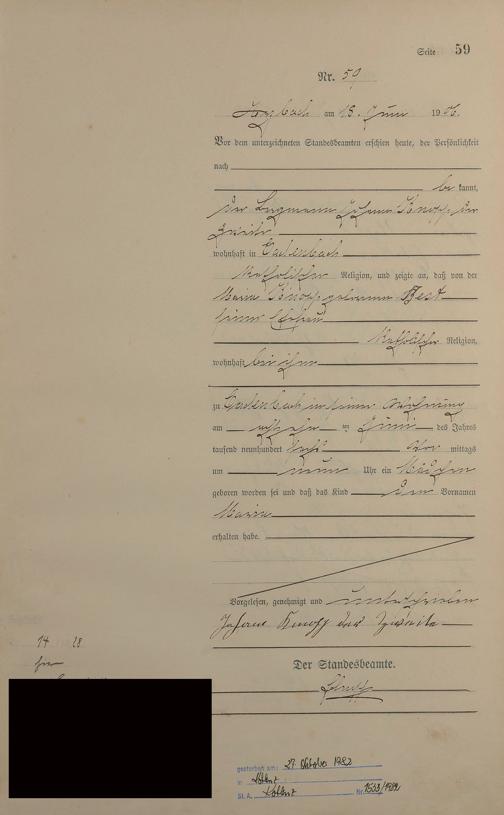 Seite 59
Nr. 59
am 18. Juni 1906.
Vor dem unterzeichneten Standesbeamten erschien heute, der Persönlichkeit
nach
be kannt,
der Bergmann Johann Knopp der
Zweite
wohnhaft in Cadenbach
katholischer Religion, und zeigte an, daß von der
Maria Knopp geborenen
seiner Ehefrau
katholischer Religion,
wohnhaft bei ihm
zu Cadenbach in seiner Wohnung
am Juni des Jahres
tausend neunhundert sechs Vor mittags
um neun Uhr ein Mädchen
geboren worden sei und daß das Kind den Vornamen
Maria
erhalten habe.
Vorgelesen, genehmigt und unterschrieben
Johann Knopp der Zweite
Der Standesbeamte.
14 28
gestorben am: 27. Oktober 1982
in Koblenz
St. A. Koblenz Nr. 1533/1982